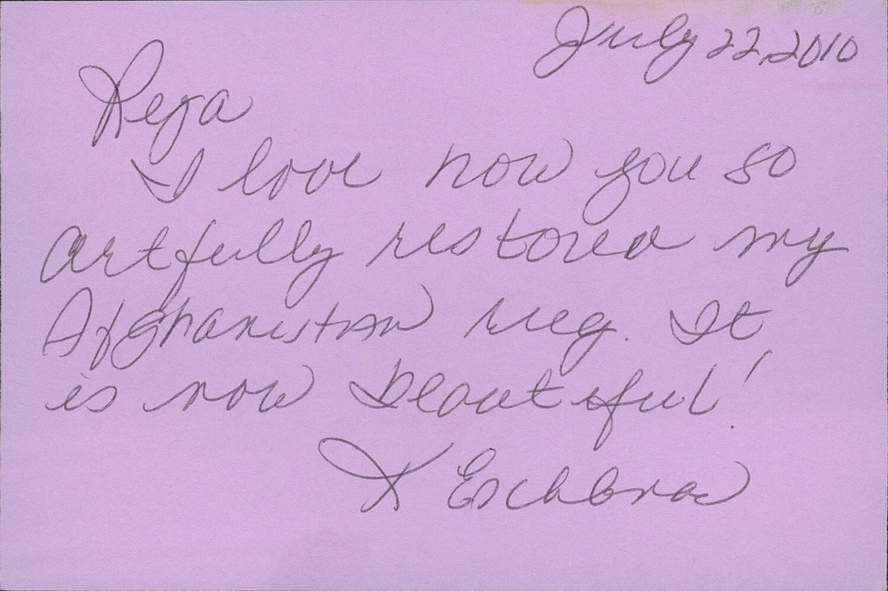 July 22, 2010
Reza
I love how you so
artfully restored my
Afghanistan rug. It
is now beautiful!
K